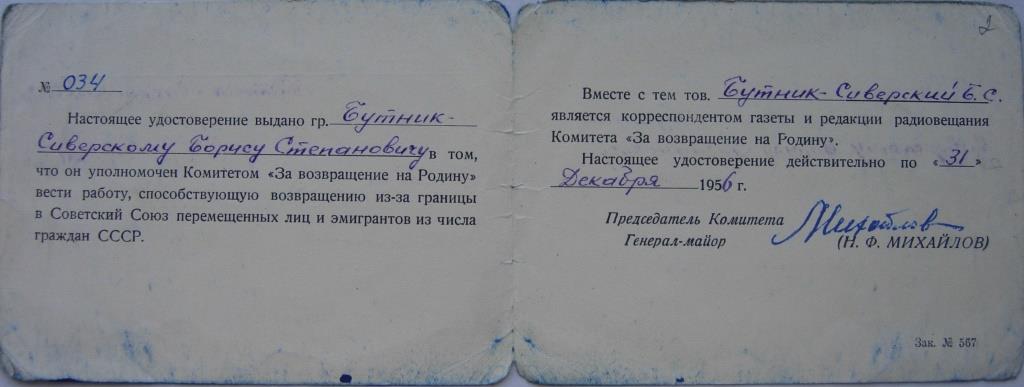 № 034
Настоящее удостоверение выдано гр. Бутник-
Сиверскому Борису Степановичу в том,
что он уполномочен Комитетом «За возвращение на Родину»
вести работу, способствующую возвращению из-за границы
в Советский Союз перемещенных лиц и эмигрантов из числа
граждан СССР.
2
Вместе с тем тов. Бутник-Сиверский Б.С.
является корреспондентом газеты и редакции радиовещания
Комитета «За возвращение на Родину».
Настоящее удостоверение действительно по «31»
Декабря 1956 г.
Председатель Комитета
Генерал-майор Михайлов (Н. Ф. МИХАЙЛОВ)
Зак. № 567